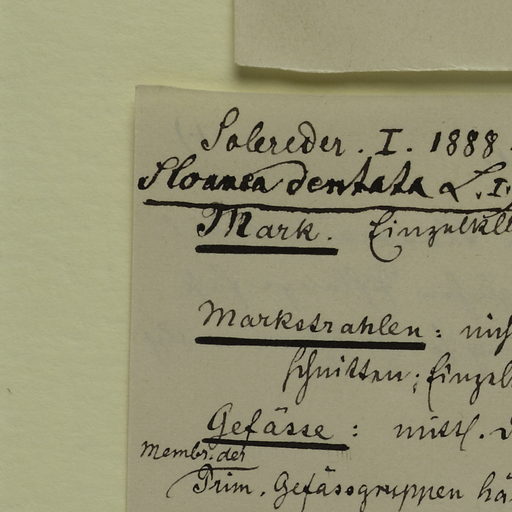 Solereder. I. 1888.
Sloanea dentata L. I.
Mark. Einzelkll
Markstrahlen: nich
schnitten; Einzel
Gefässe: mittl. d
Membr. der
Prim. Gefässgruppen hä